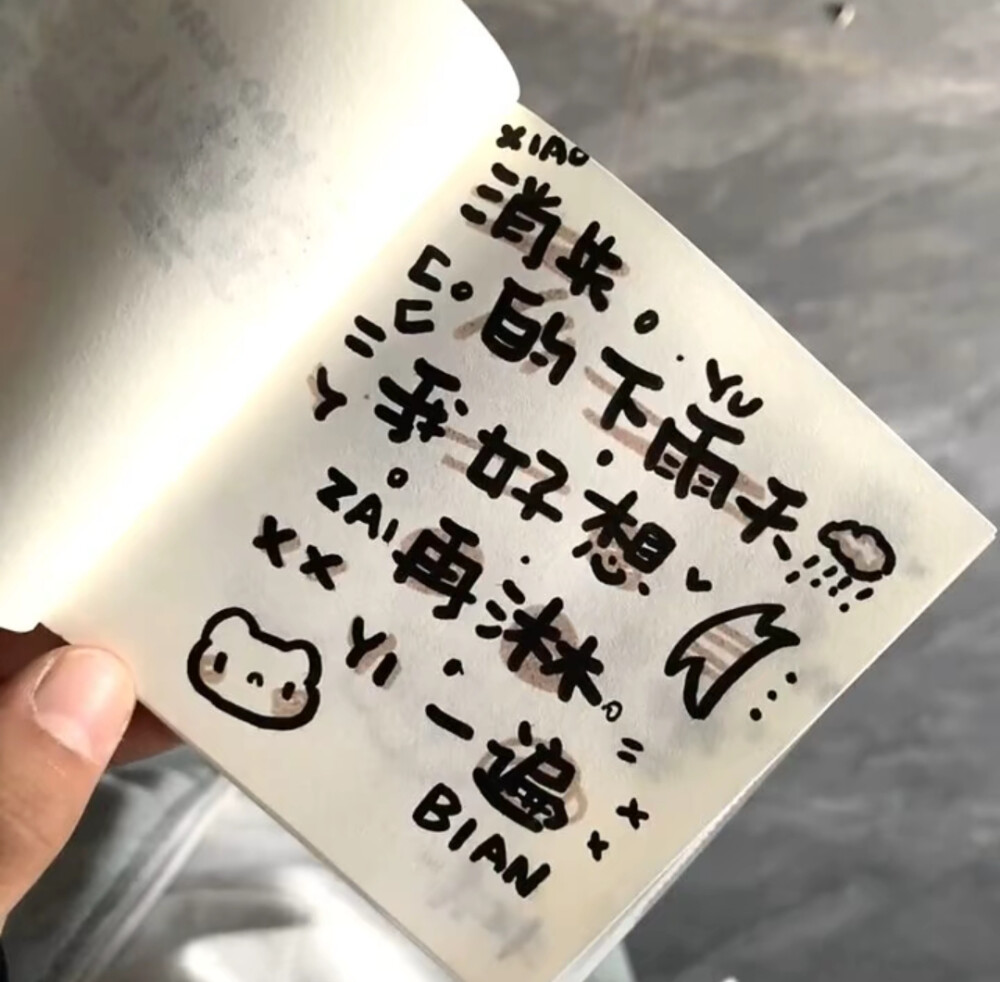 XIAO
消失
的下雨天
YU
我好想
ZAI
再淋
YI
一遍
BIAN